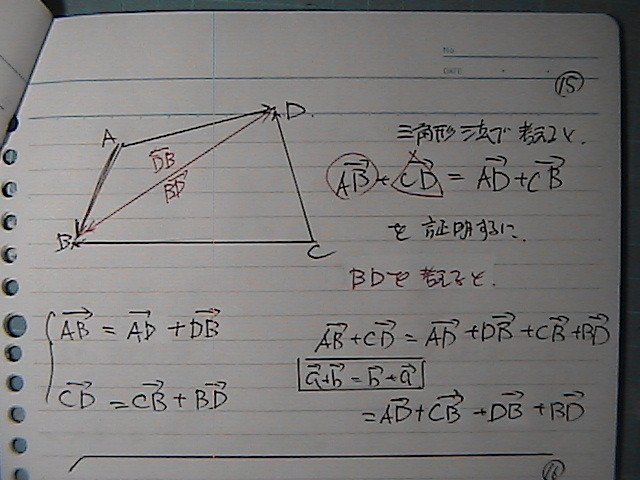 NO.
DATE
⑮
A
D.
DB
BD
B
C
三角形三法で考えると.
AB + CD = AD + CB
を証明するに.
BDを考えると.
AB = AD + DB
CD = CB + BD
AB + CD = AD + DB + CB + BD
a+b = b+a
= AD + CB + DB + BD
⑯